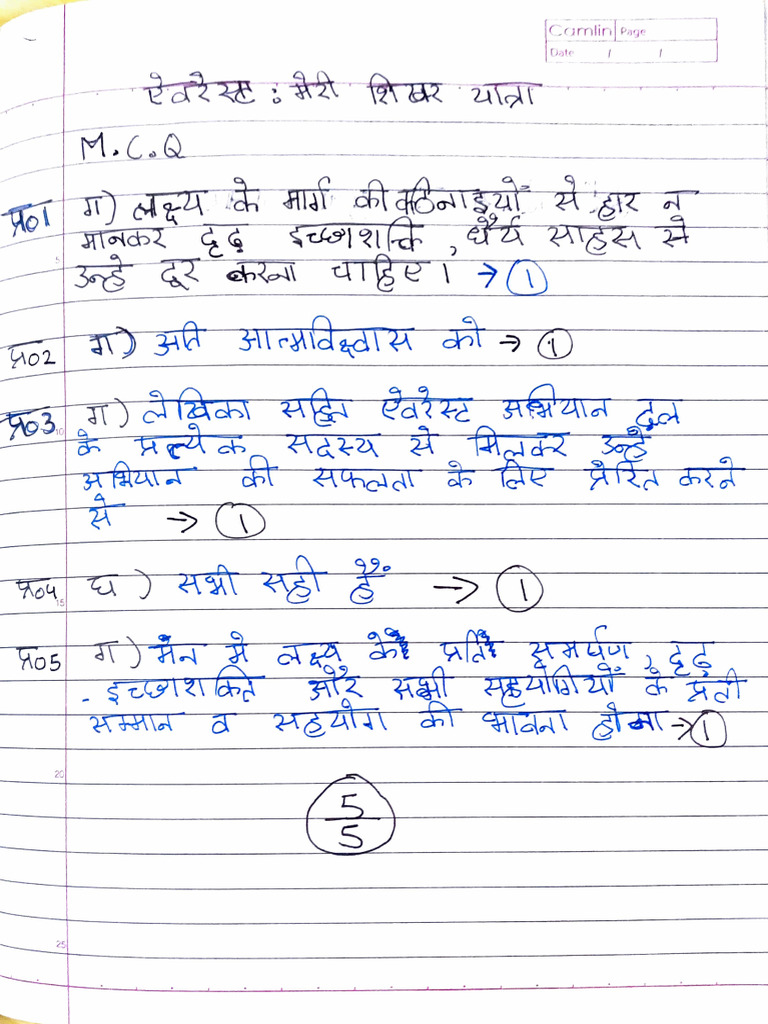 Camlin Page
Date / /
ऐवरेस्ट : मेरी शिखर यात्रा
M.C.Q
प्र01 ग) लक्ष्य के मार्ग की कठिनाइयों से हार न
मानकर दृढ़ इच्छाशक्ति , धैर्य साहस से
उन्हे दूर करना चाहिए । → 1
प्र02 ग) अति आत्मविश्वास को → 1
प्र03 ग) लेखिका सहित ऐवरेस्ट अभियान दल
के प्रत्येक सदस्य से मिलकर उन्हें
अभियान की सफलता के लिए प्रेरित करने
से → 1
प्र04 घ ) सभी सही हैं → 1
प्र05 ग) मन मे लक्ष्य के प्रति समर्पण , दृढ़
- इच्छाशक्ति और सभी सहयोगियों के प्रती
सम्मान व सहयोग की भावना होना → 1
5
5
10
15
20
25